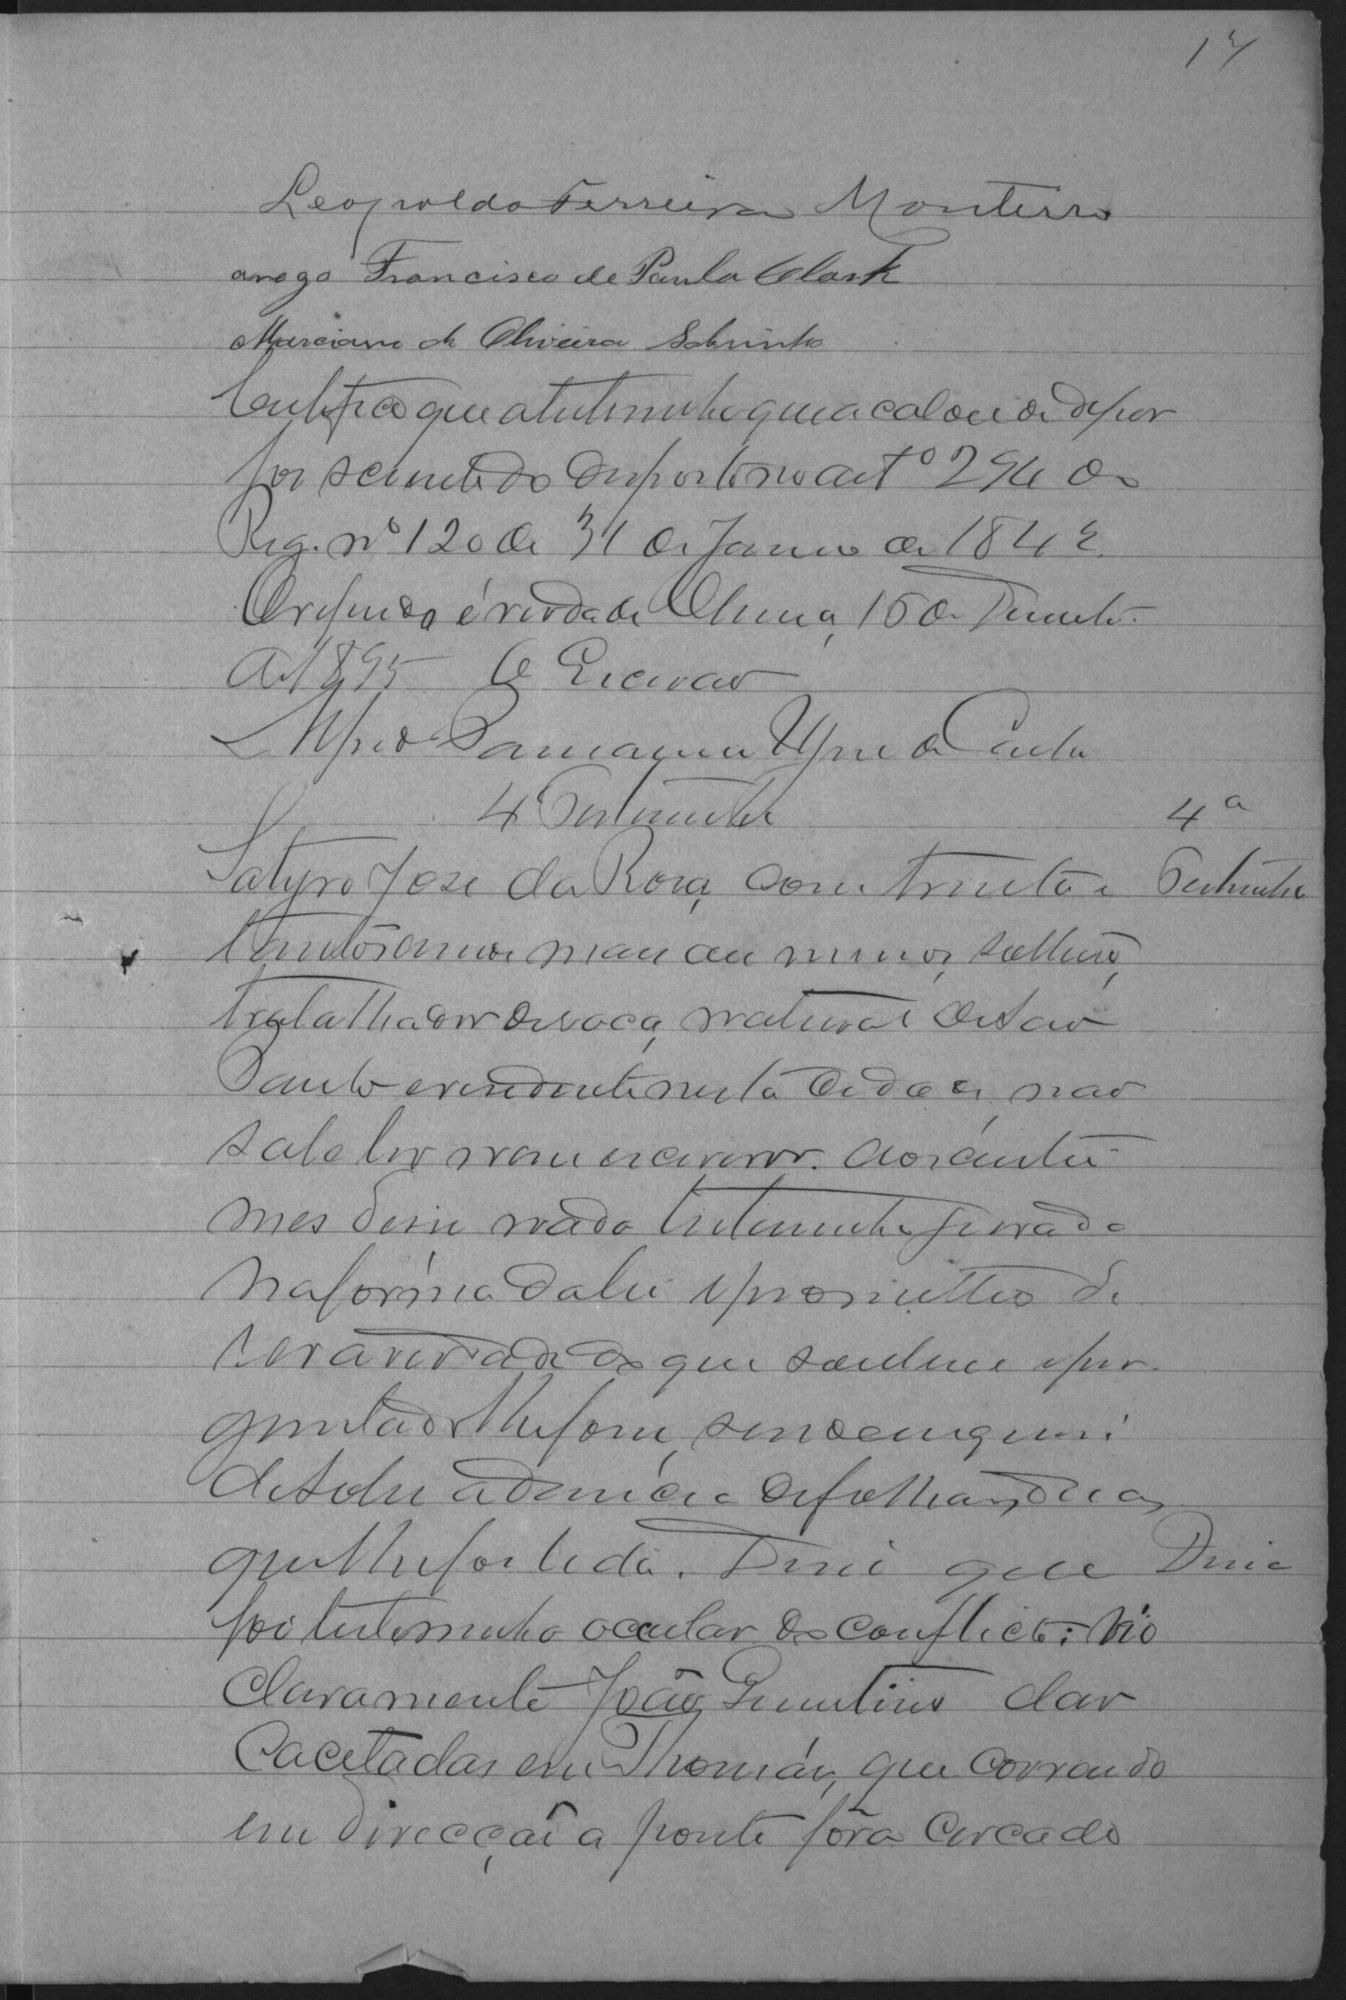 17
Leopoldo Ferreira Monteiro
arogo Francisco de Paula Clark
Marciano de Oliveira Sobrinho
Certifico que a testemunha que acaba de depor
foi scientedo disposto no artº 294 do
Reg. nº 120 de 31 de Janeiro de 1842.
O referido é verdade 15 de
de 1895 O Escrivão
Alfredo
4ª Testemunha
4ª
Testemunha
Satyro Jose da Rosa, com trinta e
tantos annos mais ou menos, solteiro,
trabalhador de roça, natural de São
Paulo e residente nesta cidade, não
sabe ler nem escrever. Aos costu
mes disse nada testemunha jurada
na forma da lei e prometteo di
ser a verdade do que soubesse e per
guntado lhe fosse, sendo inqueri
do sobre a denúncia de folhas duas
que lhe foi lida. Disse que
Disse
foi testemunha occular do conflicto: vio
claramente João Quintino dar
cacetadas em Thomás, que correndo
em direcção a ponte fôra cercado